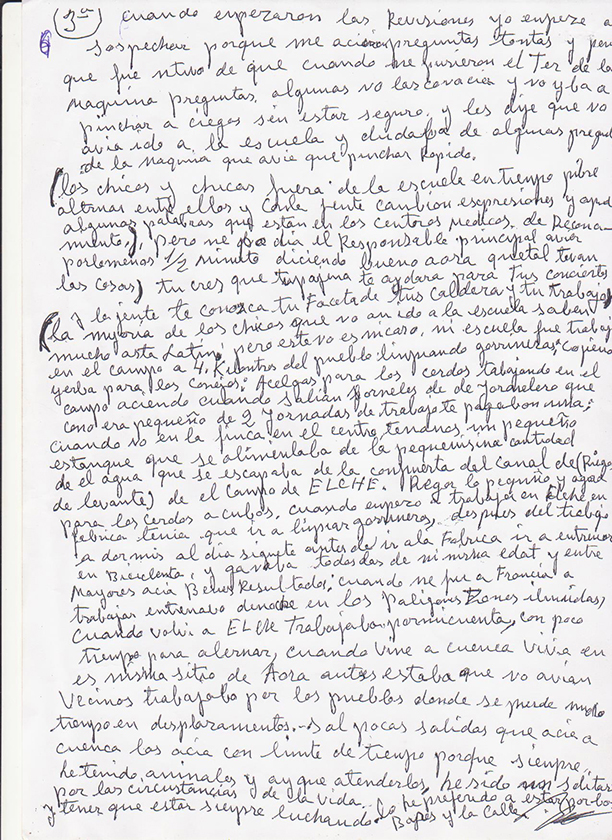 (3ª) cuando enpezaron las Revisiones yo enpeze a
sospechar porque me acian preguntas tontas y
que fue ntivo de que cuando me pusieron el Ter de la
Maquina preguntas, algunas no las conacia y no yba a
pinchar a ciegas sin estar seguro, y les dije que no
avia ido a la escuela y dudaba de algunas
de la Maquina que avia que pinchar Rapido.
(los chicos y chicas fuera de la escuela en tienpo libre
alternan entre ellos y con la jente canbion espresiones y
algunas palabras que estan en los Centros Medicos de
), pero me dia el Responsable principal
porlomenos 1/2 minuto diciendo bueno aora quetal tevan
las cosas, tu cres que tupajina te aydara para tus conciertos
y la jente te conosca tu Faceta de tus caldera y tu trabajo)
(la mayoria de los chicos que no an ido a la escuela saben
mucho asta Latin, pero este no es micaso, mi escuela fue trabaj
en el campo a 4. Kilontros del pueblo linpuando gorrineras, cojiendo
yerba para los conejos; Acelgas para los cerdos tabajando en el
campo aciendo cuando salian Jorneles de de Jornalero que
como era pequeño de 2 Jornadas de trabajo te pagabon una;
cuando no en la finca en el centro, tenamos, un pequeño
estanque que se alimentaba de la pequenisina cantidad
de el agua que se escapaba de la conpuerta del canal de (Riegos
de levante) de el Campo de ELCHE. Regar lo pequño y
para los cerdos a cubos, cuando enpezo a trabajar en Elche en
fabrica tenia que ir a linpiar gorrineras, despues del trabajo
a dormir al dia sigiente antes de ir ala Fabrica ir a entrenar
en Bicicleta, y ganava todas las de mi misma edat y entre
Mayores acia Benos Resultados; cuando me fui a Francia a
trabajar entrenabo denoche en los Poligones Zones iluminadas,
Cuando volvi a ELCHE Trabajaba pormicuenta, con poco
tienpo para alernar, cuando vine a cuenca Vivia en
es misma sitio de Aora antes estaba que no avian
Vecinos trabajaba por los pueblos donde se pierde mucho
tienpo en desplazamentos. sal pocas salidas que acia a
cuenca las acia con limite de tienpo porque sienpre
he tenido, animales y ay que atenderlos, he sido un solitario
por las circustancias de la vida. lo he preferido a estar por los
y tener que estar sienpre luchando. Bares y la Calle